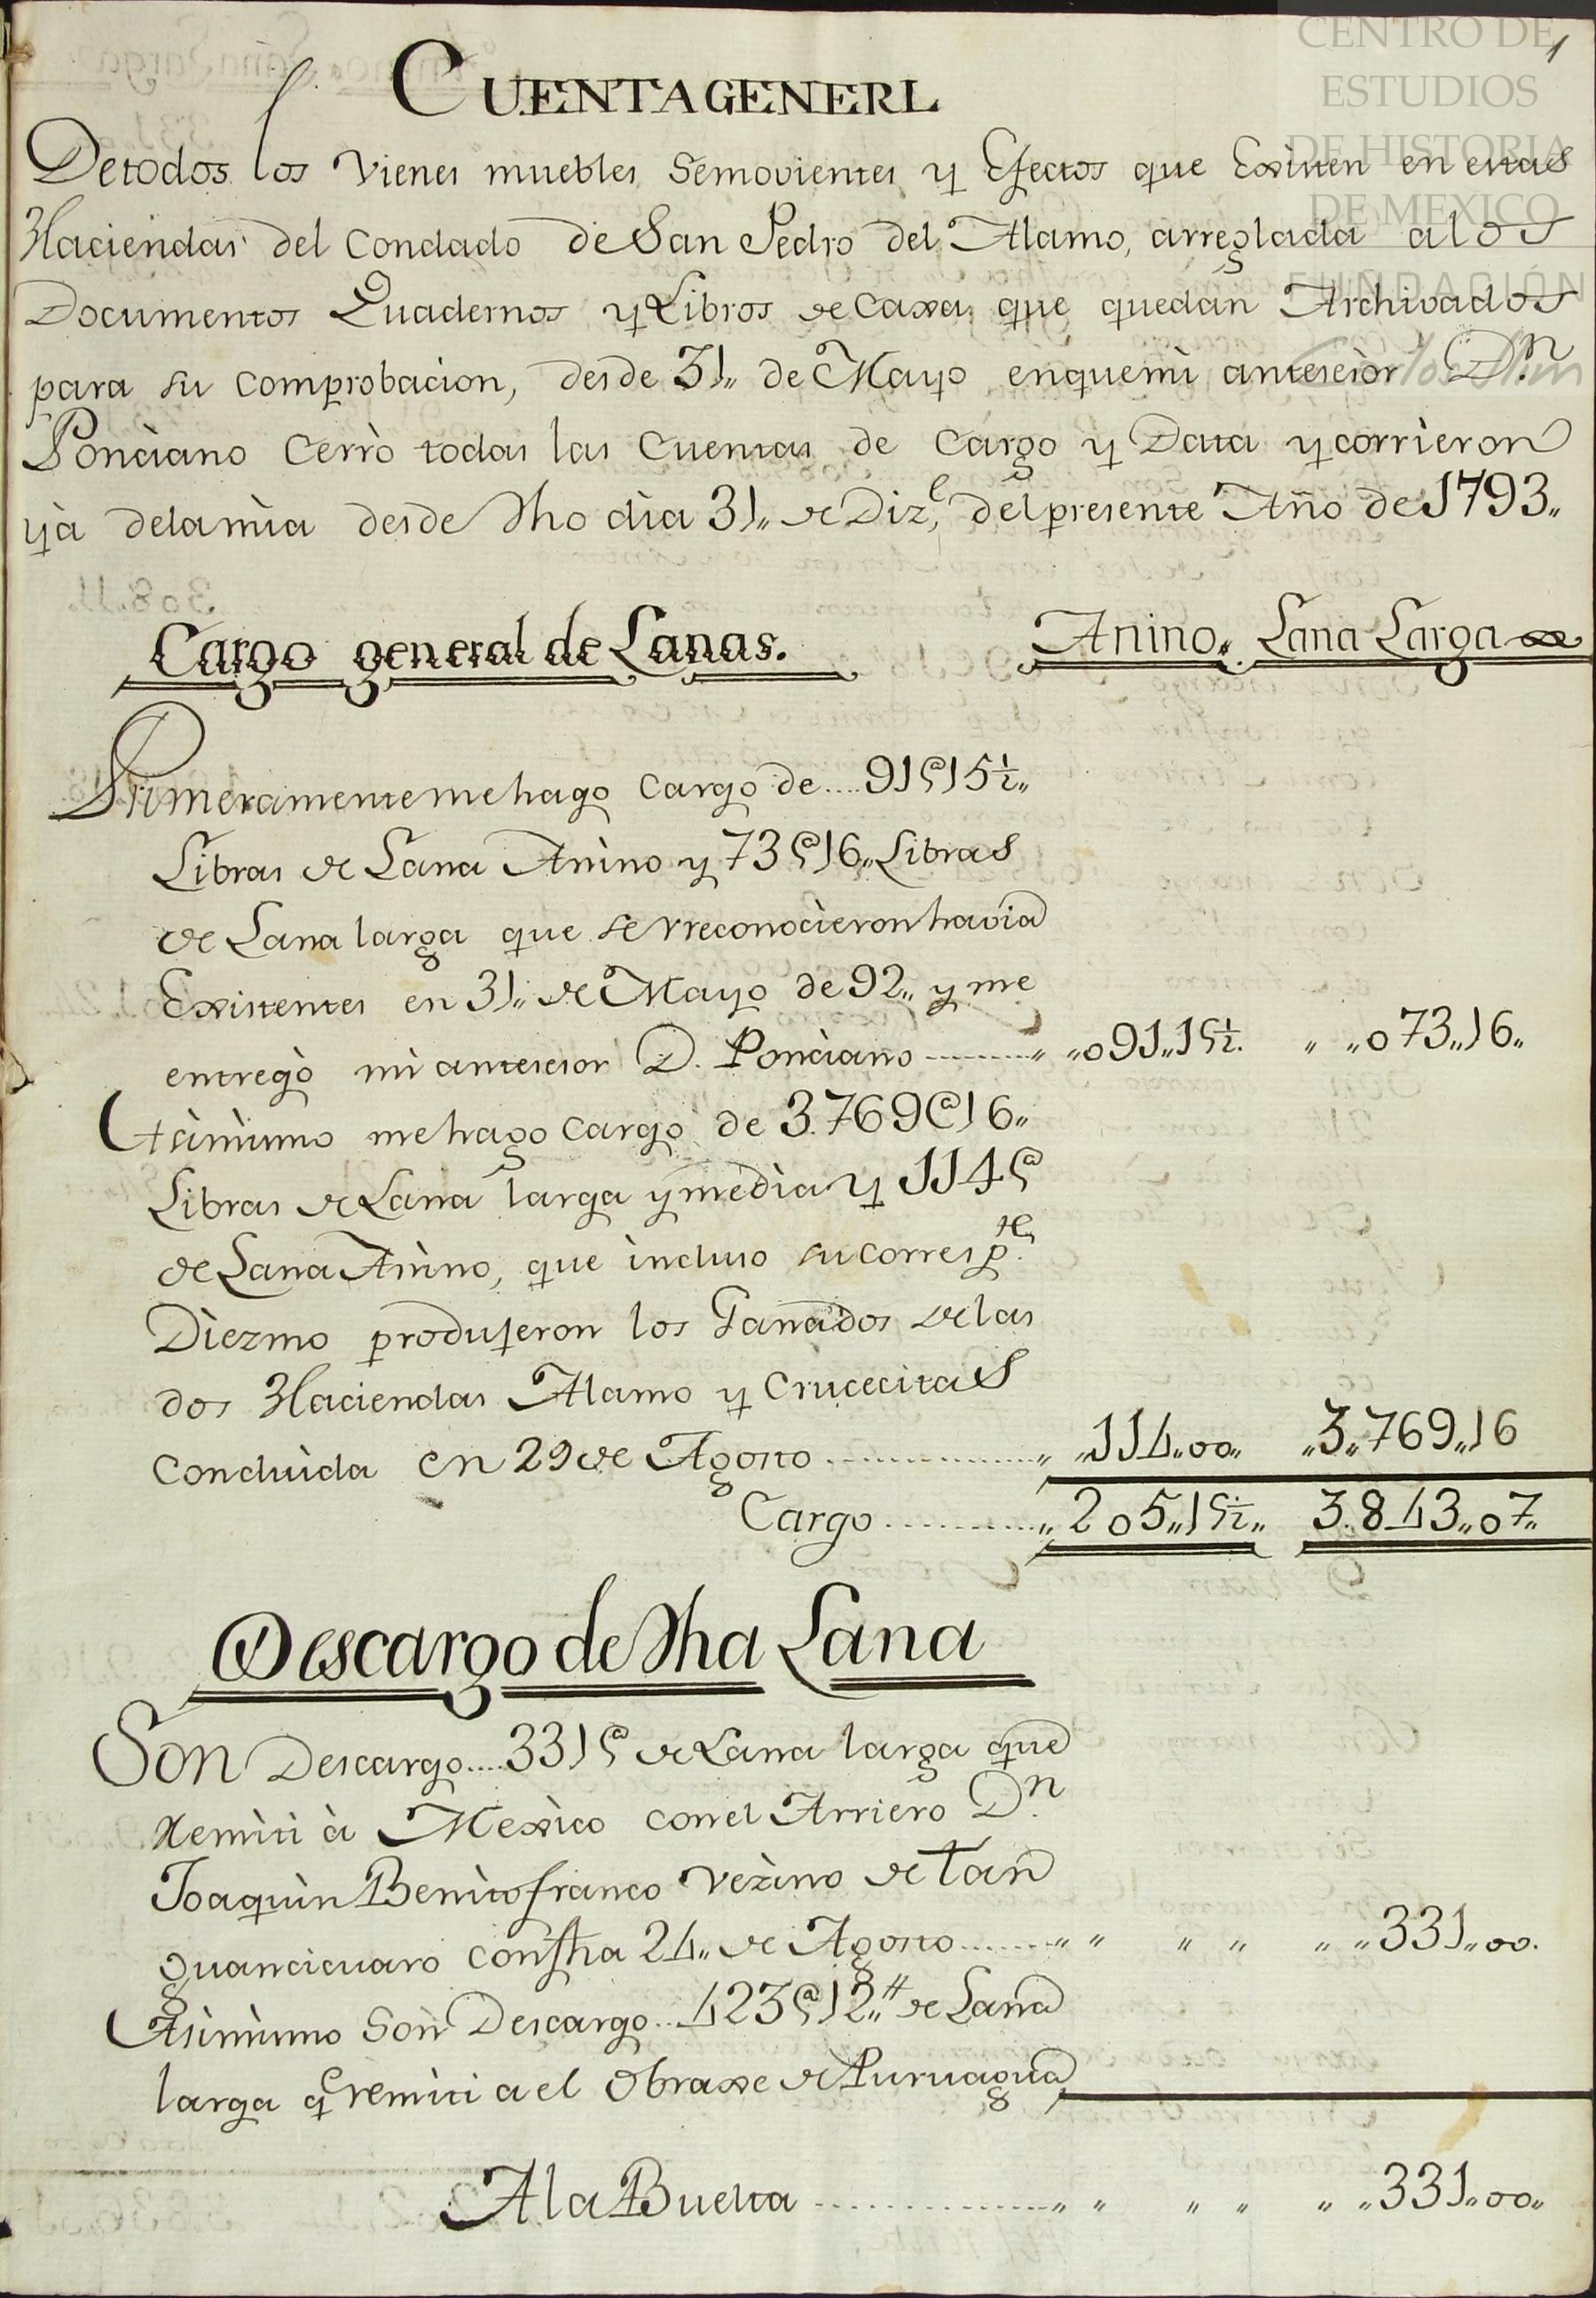 CENTRO DE
ESTUDIOS
DE HISTORIA
DE MEXICO
FUNDACIÓN
Carlos Slim
1
CUENTAGENERL
Detodos los Vienes muebles Semovientes y Efectos que Existen en estas
Haciendas del Condado de San Pedro del Alamo, arreglada alos
Documentos Quadernos y Libros de Caxa que quedan Archivados
para su Comprobacion, desde 31,, de Mayo enquemi antesesòr Dn.
Ponciano Cerrò todas las Cuentas de Cargo y Data y corrieron
yà delamia desde dho dia 31,, de Dize, del presente Año de 1793,,
Cargo general de Lanas. Anino,, Lana Larga
Primeramente me hago Cargo de....91@15½,,
Libras de Lana Anino y 73@16,, Libras
de Lana larga que se rreconocieron havia
Existentes en 31,, de Mayo de 92,, y me
entregò mi antesesor D. Ponciano ........,, ,,091,,15½. ,, ,,073,,16,,
Asimismo me hago Cargo de 3.769@16,,
Libras de Lana larga y media y 114@
de Lana Anino, que incluso su corresp.te
Diezmo produjeron los Ganados de las
dos Haciendas Alamo y Crucecitas
Concluida en 29 de Agosto ..............,, ,,114,,00,, ,,3,,769,,16
Cargo ...........,, 205,,15½,, 3.843,,07,,
Descargo de dha Lana
Son Descargo....331@ de Lana larga que
Remiti à Mexico con el Arriero Dn.
Joaquin Benito franco Vezino de Tan
guancicuaro confha 24,, de Agosto.......,, ,, ,, ,, ,, ,,331,,00.
Asimismo Son Descargo..423@12,,# de Lana
larga q remiti a el Obraxe de Puruagua
A la Buelta ...............,, ,, ,, ,, ,, ,,331,,00,,